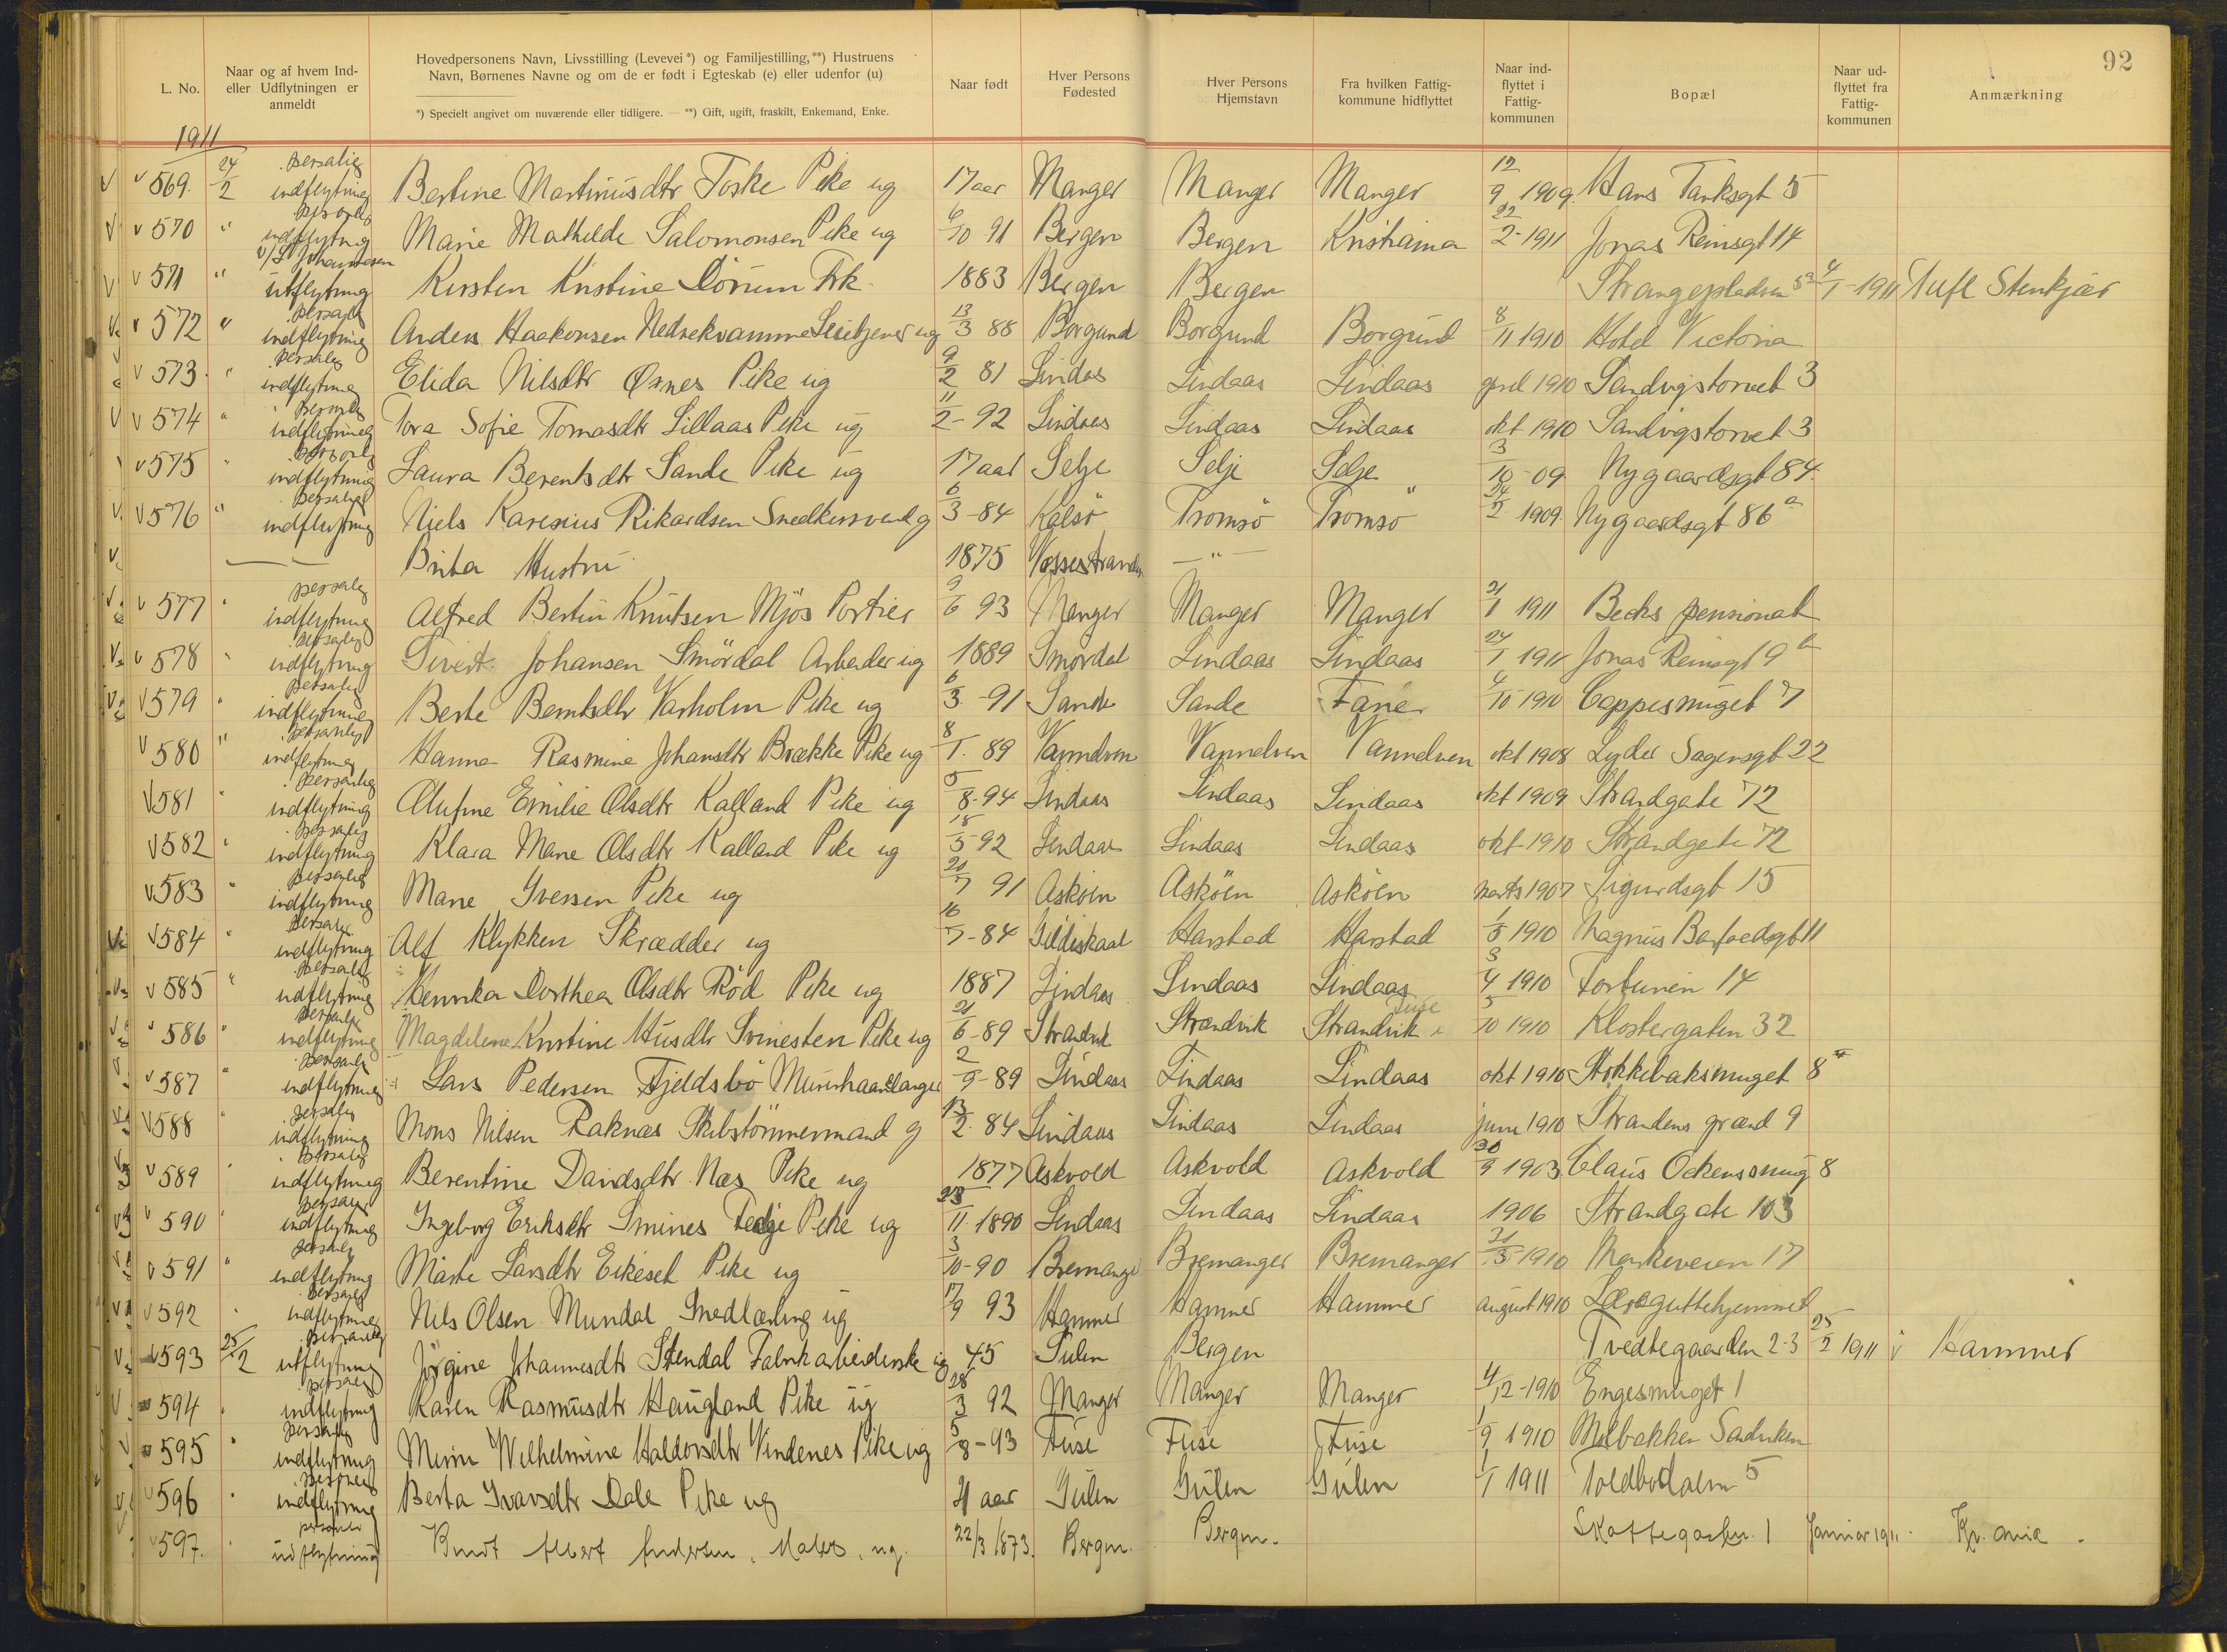 92
L. No.
Naar og af hvem Ind- eller Udflytningen er anmeldt
Hovedpersonens Navn, Livsstilling (Levevei*) og Familjestilling,**) Hustruens Navn, Børnenes Navne og om de er født i Egteskab (e) eller udenfor (u)
*) Specielt angivet om nuværende eller tidligere. — **) Gift, ugift, fraskilt, Enkemand, Enke.
Naar født
Hver Persons Fødested
Hver Persons Hjemstavn
Fra hvilken Fattig- kommune hidflyttet
Naar ind- flyttet i Fattig- kommunen
Bopæl
Naar ud- flyttet fra Fattig- kommunen
Anmærkning
1911
569. 24/2 personlig indflytning Bertine Martinusdtr Toske Pike ug 17 aar Manger Manger Manger 12/9 1909. Hans Tanksgt 5
570 " personlig indflytning Marie Mathilde Salomonsen Pike ug 6/10 91 Bergen Bergen Kristiania 22/2-1911 Jonas Reinsgt 14
571 " v/ Johannesen utflytning Kirsten Kristine Dörum Frk. 1883 Bergen Bergen Strangepladsen 4/1-1911 Stenkjær
572 " personlig indflytning Anders Haakonsen Nedrekvamme ug 13/3 88 Borgund Borgund Borgund 8/11 1910 Hotel Victoria
573 " personlig indflytning Elida Nilsdtr Oxnes Pike ug 9/2 81 Lindaas Lindaas Lindaas april 1910 Sandvigstorvet 3
574 " personlig indflytning Tora Sofie Tomasdtr Lillaas Pike ug 11/2-92 Lindaas Lindaas Lindaas okt 1910 Sandvigstorvet 3
575 " personlig indflytning Laura Berentsdtr Sande Pike ug 17 aar Selje Selje Selje 3/10-09 Nygaardsgt 84.
576 " personlig indflytning Niels Karesius Rikardsen Snedkersvend g 6/3-84 Kalsö Tromsö Tromsö 24/2 1909 Nygaardsgt 86 a
— Brita Hustru 1875 Vossestranden — " —
577 " personlig indflytning Alfred Bertin Knutsen Mjös Portier 9/6 93 Manger Manger Manger 21/1 1911 Becks pensionat
578 " personlig indflytning Sivert Johansen Smördal Arbeider ug 1889 Smördal Lindaas Lindaas 24/1 1911 Jonas Reinsgt 9 b
579 " personlig indflytning Berte Berntsdtr Varholm Pike ug 6/3-91 Sande Sande Fane 4/10 1910 Coppesmuget 7
580 " personlig indflytning Hanna Rasmine Johansdtr Brække Pike ug 8/1. 89 Vannelven Vannelven Vannelven okt 1908 Lyder Sagensgt 22
581 personlig indflytning Olufine Emilie Olsdtr Kalland Pike ug 5/8-94 Lindaas Lindaas Lindaas okt 1909 Strandgate 72
582 " personlig indflytning Klara Marie Olsdtr Kalland Pike ug 18/5 92 Lindaas Lindaas Lindaas okt 1910 Strandgate 72
583 " personlig indflytning Marie Iversen Pike ug 21/7 91 Asköen Asköen Asköen marts 1907 Sigurdsgt 15
584 " personlig indflytning Alf Klykken Skrædder ug 16/7-84 Gildeskaal Harstad Harstad 1/5 1910 Magnus Barfoedsgt 11
585 " personlig indflytning Henrika Dorthea Olsdtr Röd Pike ug 1887 Lindaas Lindaas Lindaas 3/4 1910 Fortunen 14
586 " personlig indflytning Magdelene Kristine Husdtr Svinesten Pike ug 21/6-89 Strandvik Strandvik Strandvik Fuse 5/10 1910 Klostergaten 32
587 " personlig indflytning Lars Pedersen Fjeldsbö Murerhaandlanger 2/9-89 Lindaas Lindaas Lindaas okt 1910 Stokkebaksmuget 8
588 " personlig indflytning Mons Nilsen Raknes Skibstömmermand g 13/2. 84 Lindaas Lindaas Lindaas juni 1910 Strandens grænd 9
589 " personlig indflytning Berentine Davidsdtr Næs Pike ug 1877 Askvold Askvold Askvold 30/9 1903 Claus Ockenssmug 8
590 " personlig indflytning Ingeborg Eriksdtr Smines Fedje Pike ug 23/11. 1890 Lindaas Lindaas Lindaas 1906 Strandgate 103
591 " personlig indflytning Marte Larsdtr Eikeset Pike ug 3/10-90 Bremanger Bremanger Bremanger 21/5 1910 Markeveien 17
592 " personlig indflytning Nils Olsen Mundal Smedlærling ug 17/9 93 Hammer Hammer Hammer august 1910 Læreguttehjemmet
593 25/2 personlig utflytning Jörgine Johannesdtr Stendal Fabrikarbeiderske ug 45 Gulen Bergen Tvedtegaarden 2-3 25/2 1911 Hammer
594 " personlig indflytning Karen Rasmusdtr Haugland Pike ug 28/3 92 Manger Manger Manger 4/12-1910 Engesmuget 1
595 " personlig indflytning Mimi Wilhelmine Haldorsdtr Vindenes Pike ug 5/8-93 Fuse Fuse Fuse 1/9 1910 Mølbakken Sandviken
596 " personlig indflytning Berta Ivarsdtr Dale Pike ug 21 aar Gulen Gulen Gulen 1/1 1911 Toldbodalm 5
597. " personlig udflytning Knut Albert Andersen, Maler, ug. 22/3 1873. Bergen. Bergen. Skottegaden 1 Januar 1911. Kr.ania.